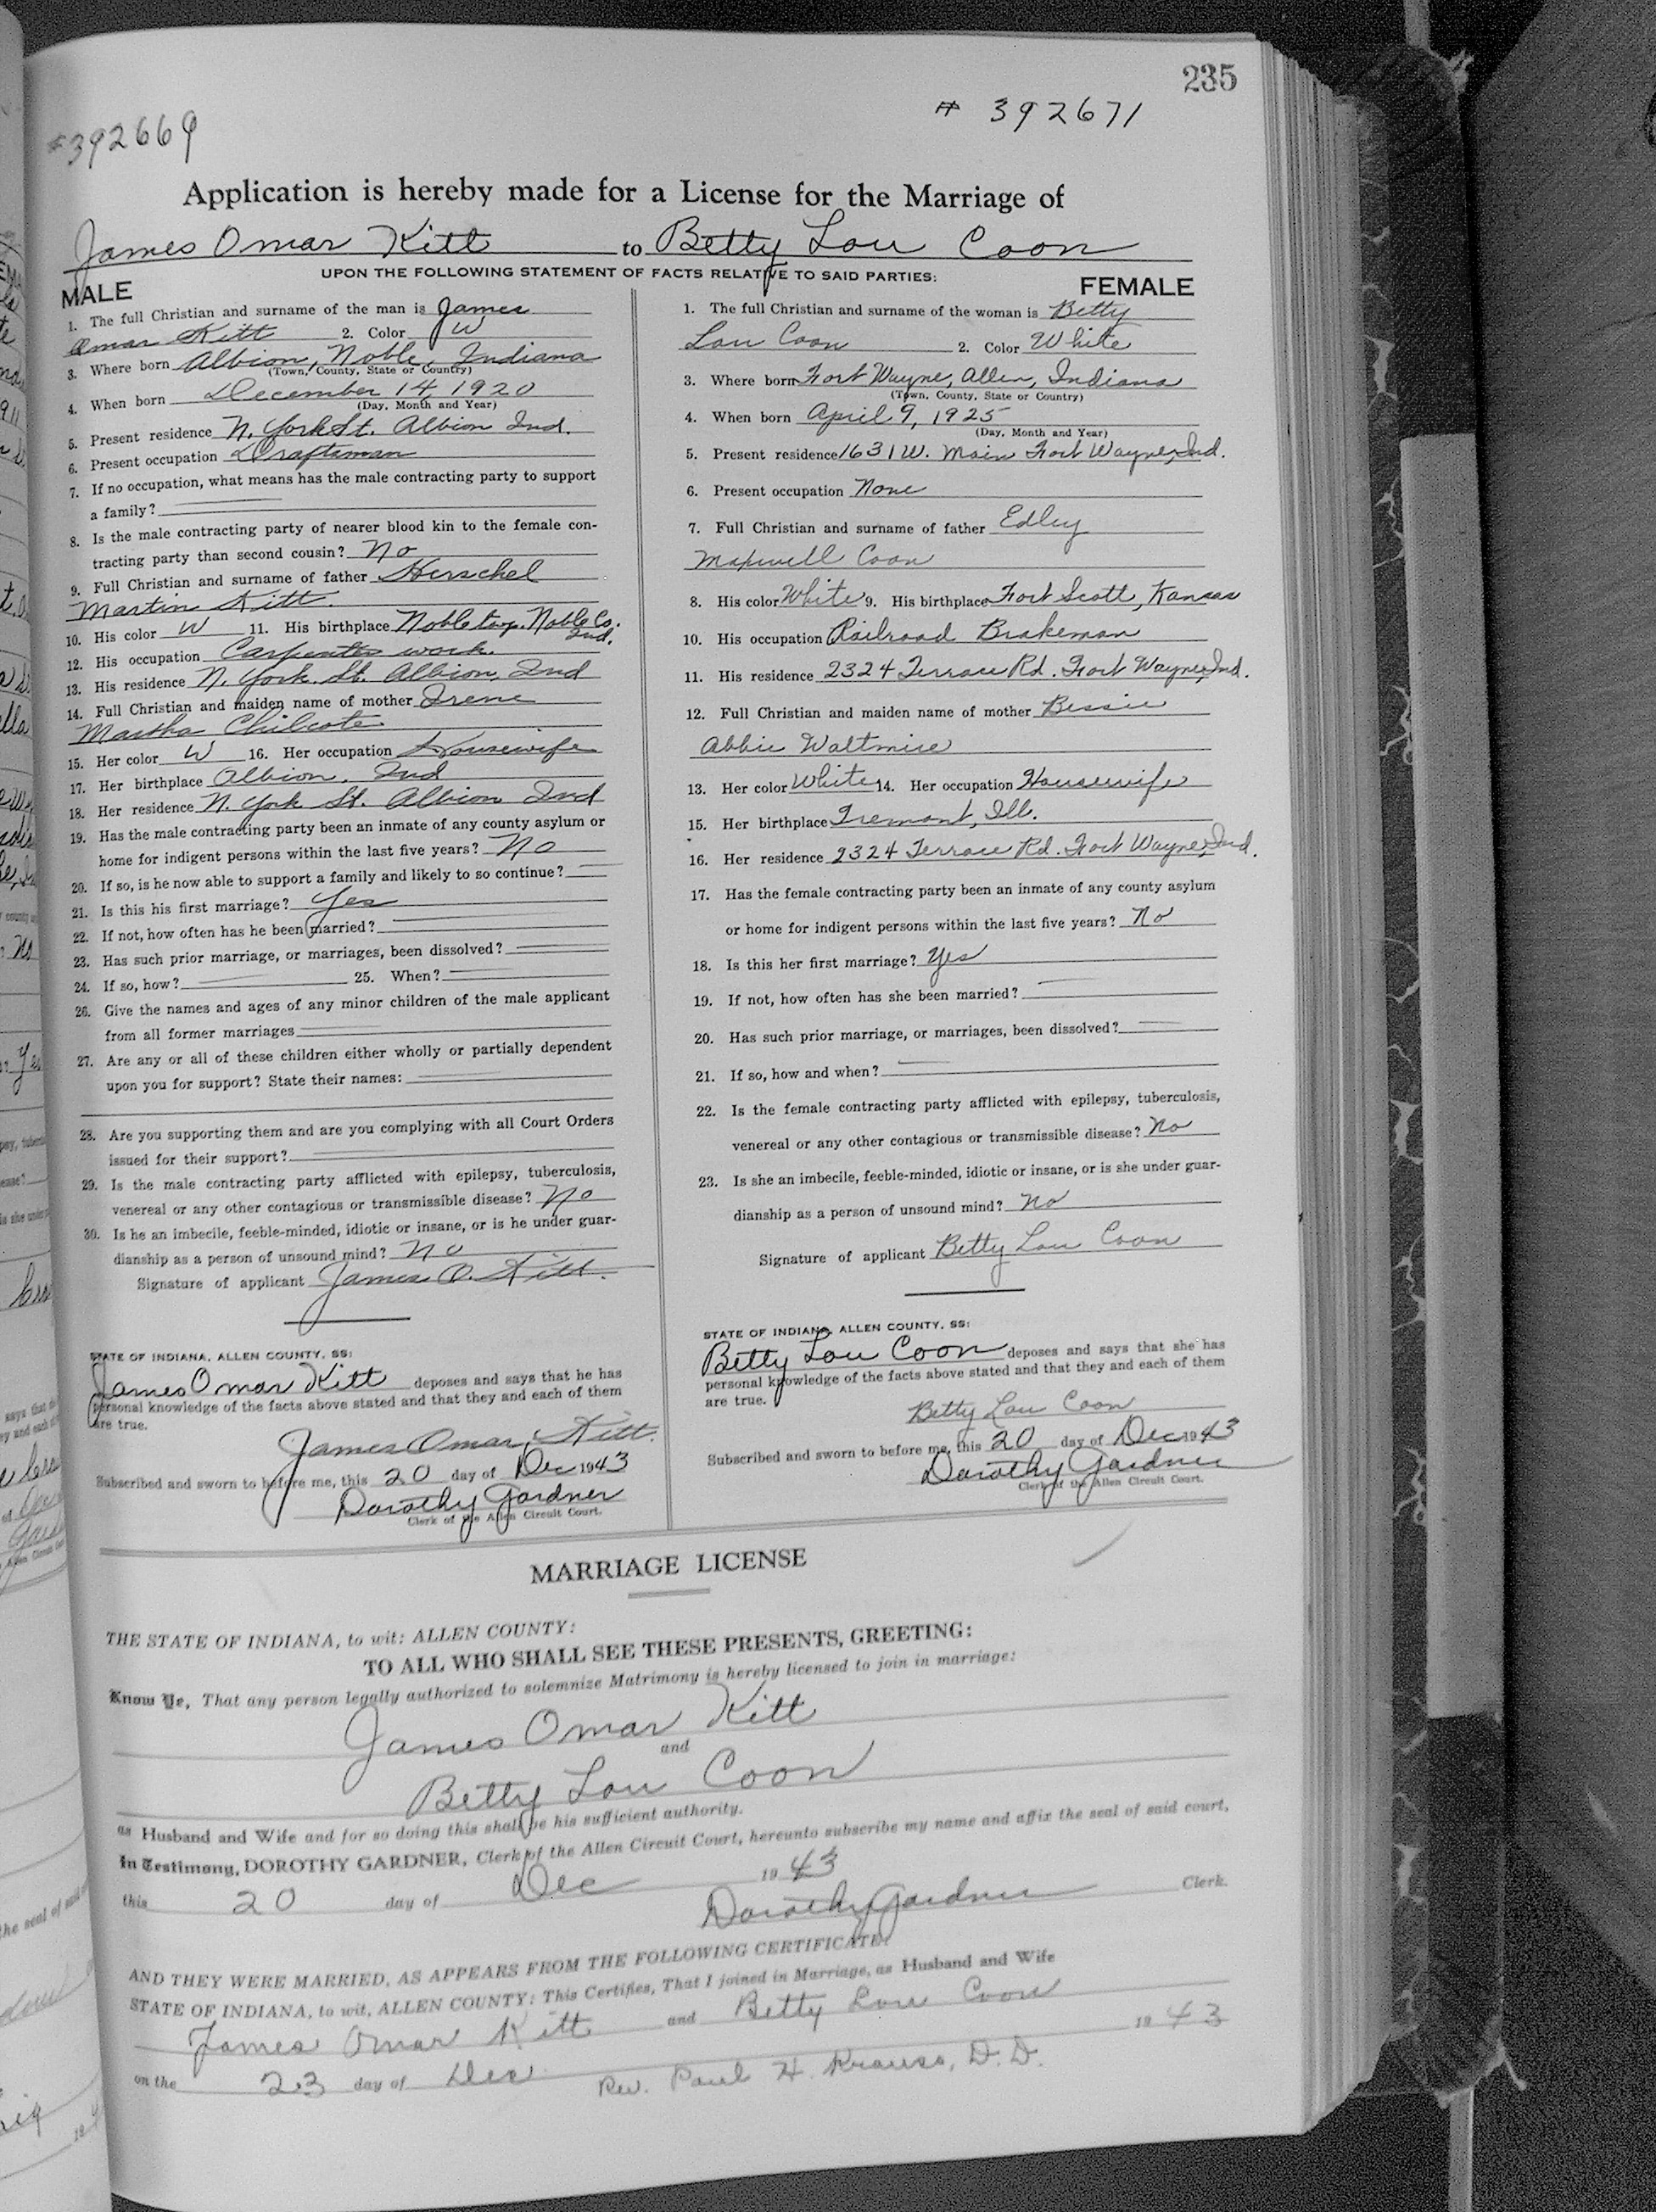 235
# 392669
# 392671
Application is hereby made for a License for the Marriage of
James Omar Kitt to Betty Lou Coon
UPON THE FOLLOWING STATEMENT OF FACTS RELATIVE TO SAID PARTIES:
MALE
1. The full Christian and surname of the man is James
Omar Kitt 2. Color W
3. Where born Albion, Noble, Indiana
(Town, County, State or Country)
4. When born December 14, 1920
(Day, Month and Year)
5. Present residence N. York St. Albion Ind.
6. Present occupation Draftsman
7. If no occupation, what means has the male contracting party to support
a family?
8. Is the male contracting party of nearer blood kin to the female con-
tracting party than second cousin? No
9. Full Christian and surname of father Herschel
Martin Kitt.
10. His color W 11. His birthplace Noble twp. Noble Co.
Ind.
12. His occupation Carpenter work.
13. His residence N. York. St. Albion, Ind
14. Full Christian and maiden name of mother Irene
Martha Chilcote
15. Her color W 16. Her occupation Housewife
17. Her birthplace Albion, Ind
18. Her residence N. York St. Albion Ind
19. Has the male contracting party been an inmate of any county asylum or
home for indigent persons within the last five years? No
20. If so, is he now able to support a family and likely to so continue?
21. Is this his first marriage? Yes
22. If not, how often has he been married?
23. Has such prior marriage, or marriages, been dissolved?
24. If so, how? 25. When?
26. Give the names and ages of any minor children of the male applicant
from all former marriages
27. Are any or all of these children either wholly or partially dependent
upon you for support? State their names:
28. Are you supporting them and are you complying with all Court Orders
issued for their support?
29. Is the male contracting party afflicted with epilepsy, tuberculosis,
venereal or any other contagious or transmissible disease? No
30. Is he an imbecile, feeble-minded, idiotic or insane, or is he under guar-
dianship as a person of unsound mind? No
Signature of applicant James O. Kitt.
STATE OF INDIANA, ALLEN COUNTY, SS:
James Omar Kitt deposes and says that he has
personal knowledge of the facts above stated and that they and each of them
are true.
James Omar Kitt.
Subscribed and sworn to before me, this 20 day of Dec 1943
Dorothy Gardner
Clerk of the Allen Circuit Court.
FEMALE
1. The full Christian and surname of the woman is Betty
Lou Coon 2. Color White
3. Where born Fort Wayne, Allen, Indiana
(Town, County, State or Country)
4. When born April 9, 1925
(Day, Month and Year)
5. Present residence 1631 W. Main Fort Wayne, Ind.
6. Present occupation None
7. Full Christian and surname of father Edley
Maxwell Coon
8. His color White 9. His birthplace Fort Scott, Kansas
10. His occupation Railroad Brakeman
11. His residence 2324 Terrace Rd. Fort Wayne, Ind.
12. Full Christian and maiden name of mother Bessie
Abbie Waltmire
13. Her color White 14. Her occupation Housewife
15. Her birthplace Tremont, Ill.
16. Her residence 2324 Terrace Rd. Fort Wayne, Ind.
17. Has the female contracting party been an inmate of any county asylum
or home for indigent persons within the last five years? No
18. Is this her first marriage? Yes
19. If not, how often has she been married?
20. Has such prior marriage, or marriages, been dissolved?
21. If so, how and when?
22. Is the female contracting party afflicted with epilepsy, tuberculosis,
venereal or any other contagious or transmissible disease? No
23. Is she an imbecile, feeble-minded, idiotic or insane, or is she under guar-
dianship as a person of unsound mind? No
Signature of applicant Betty Lou Coon
STATE OF INDIANA, ALLEN COUNTY, SS:
Betty Lou Coon deposes and says that she has
personal knowledge of the facts above stated and that they and each of them
are true.
Betty Lou Coon
Subscribed and sworn to before me, this 20 day of Dec 1943
Dorothy Gardner
Clerk of the Allen Circuit Court.
MARRIAGE LICENSE
THE STATE OF INDIANA, to wit: ALLEN COUNTY:
TO ALL WHO SHALL SEE THESE PRESENTS, GREETING:
Know Ye, That any person legally authorized to solemnize Matrimony is hereby licensed to join in marriage:
James Omar Kitt
and
Betty Lou Coon
as Husband and Wife and for so doing this shall be his sufficient authority.
In Testimony, DOROTHY GARDNER, Clerk of the Allen Circuit Court, hereunto subscribe my name and affix the seal of said court,
this 20 day of Dec 1943
Dorothy Gardner Clerk.
AND THEY WERE MARRIED, AS APPEARS FROM THE FOLLOWING CERTIFICATE:
STATE OF INDIANA, to wit, ALLEN COUNTY: This Certifies, That I joined in Marriage, as Husband and Wife
James Omar Kitt and Betty Lou Coon
on the 23 day of Dec. 1943
Rev. Paul H. Krauss, D.D.